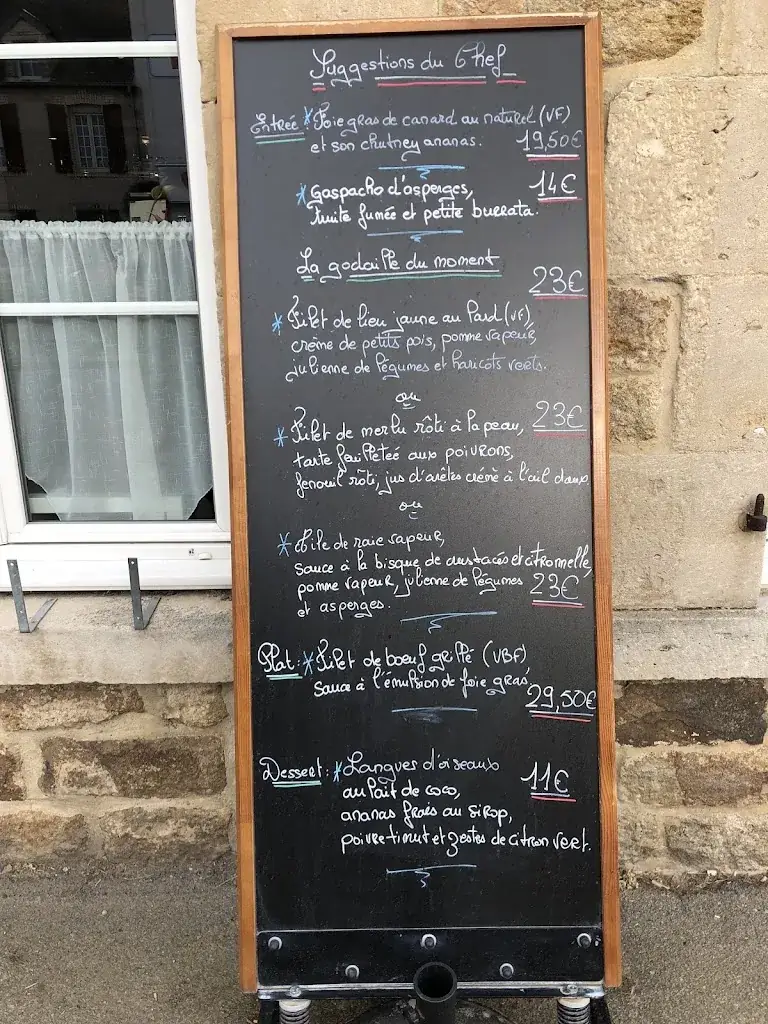 Suggestions du Chef
Entrée: * Foie gras de canard au naturel (VF)
et son chutney ananas. 19,50€
* Gaspacho d'asperges, 14€
truite fumée et petite burrata.
La godaille du moment
23€
* Filet de lieu jaune au lard (VF),
crème de petits pois, pomme vapeur,
julienne de légumes et haricots verts.
ou
* Filet de merlu rôti à la peau, 23€
tarte feuilleteé aux poivrons,
fenouil rôti, jus d'arêtes crémé à l'ail doux
ou
* Aile de raie vapeur,
sauce à la bisque de crustacés et citronnelle,
pomme vapeur, julienne de légumes 23€
et asperges.
Plat: * Filet de bœuf grillé (VBF)
sauce à l'émulsion de foie gras,
29,50€
Dessert: * Langues d'oiseaux 11€
au lait de coco,
ananas frais au sirop,
poivre timut et zestes de citron vert.